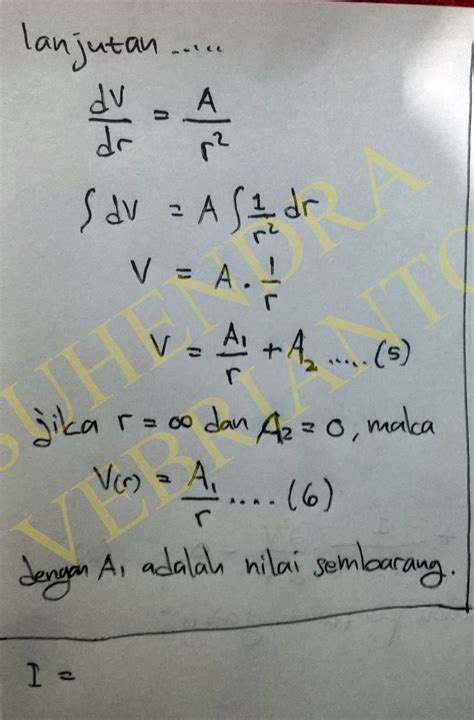 lanjutan .....
dV/dr = A/r²
∫ dV = A ∫ 1/r² dr
V = A . 1/r
V = A₁/r + A₂ ..... (5)
jika r = ∞ dan A₂ = 0, maka
V(r) = A₁/r .... (6)
dengan A₁ adalah nilai sembarang.
I =
SUHENDRA
VEBRIANTO